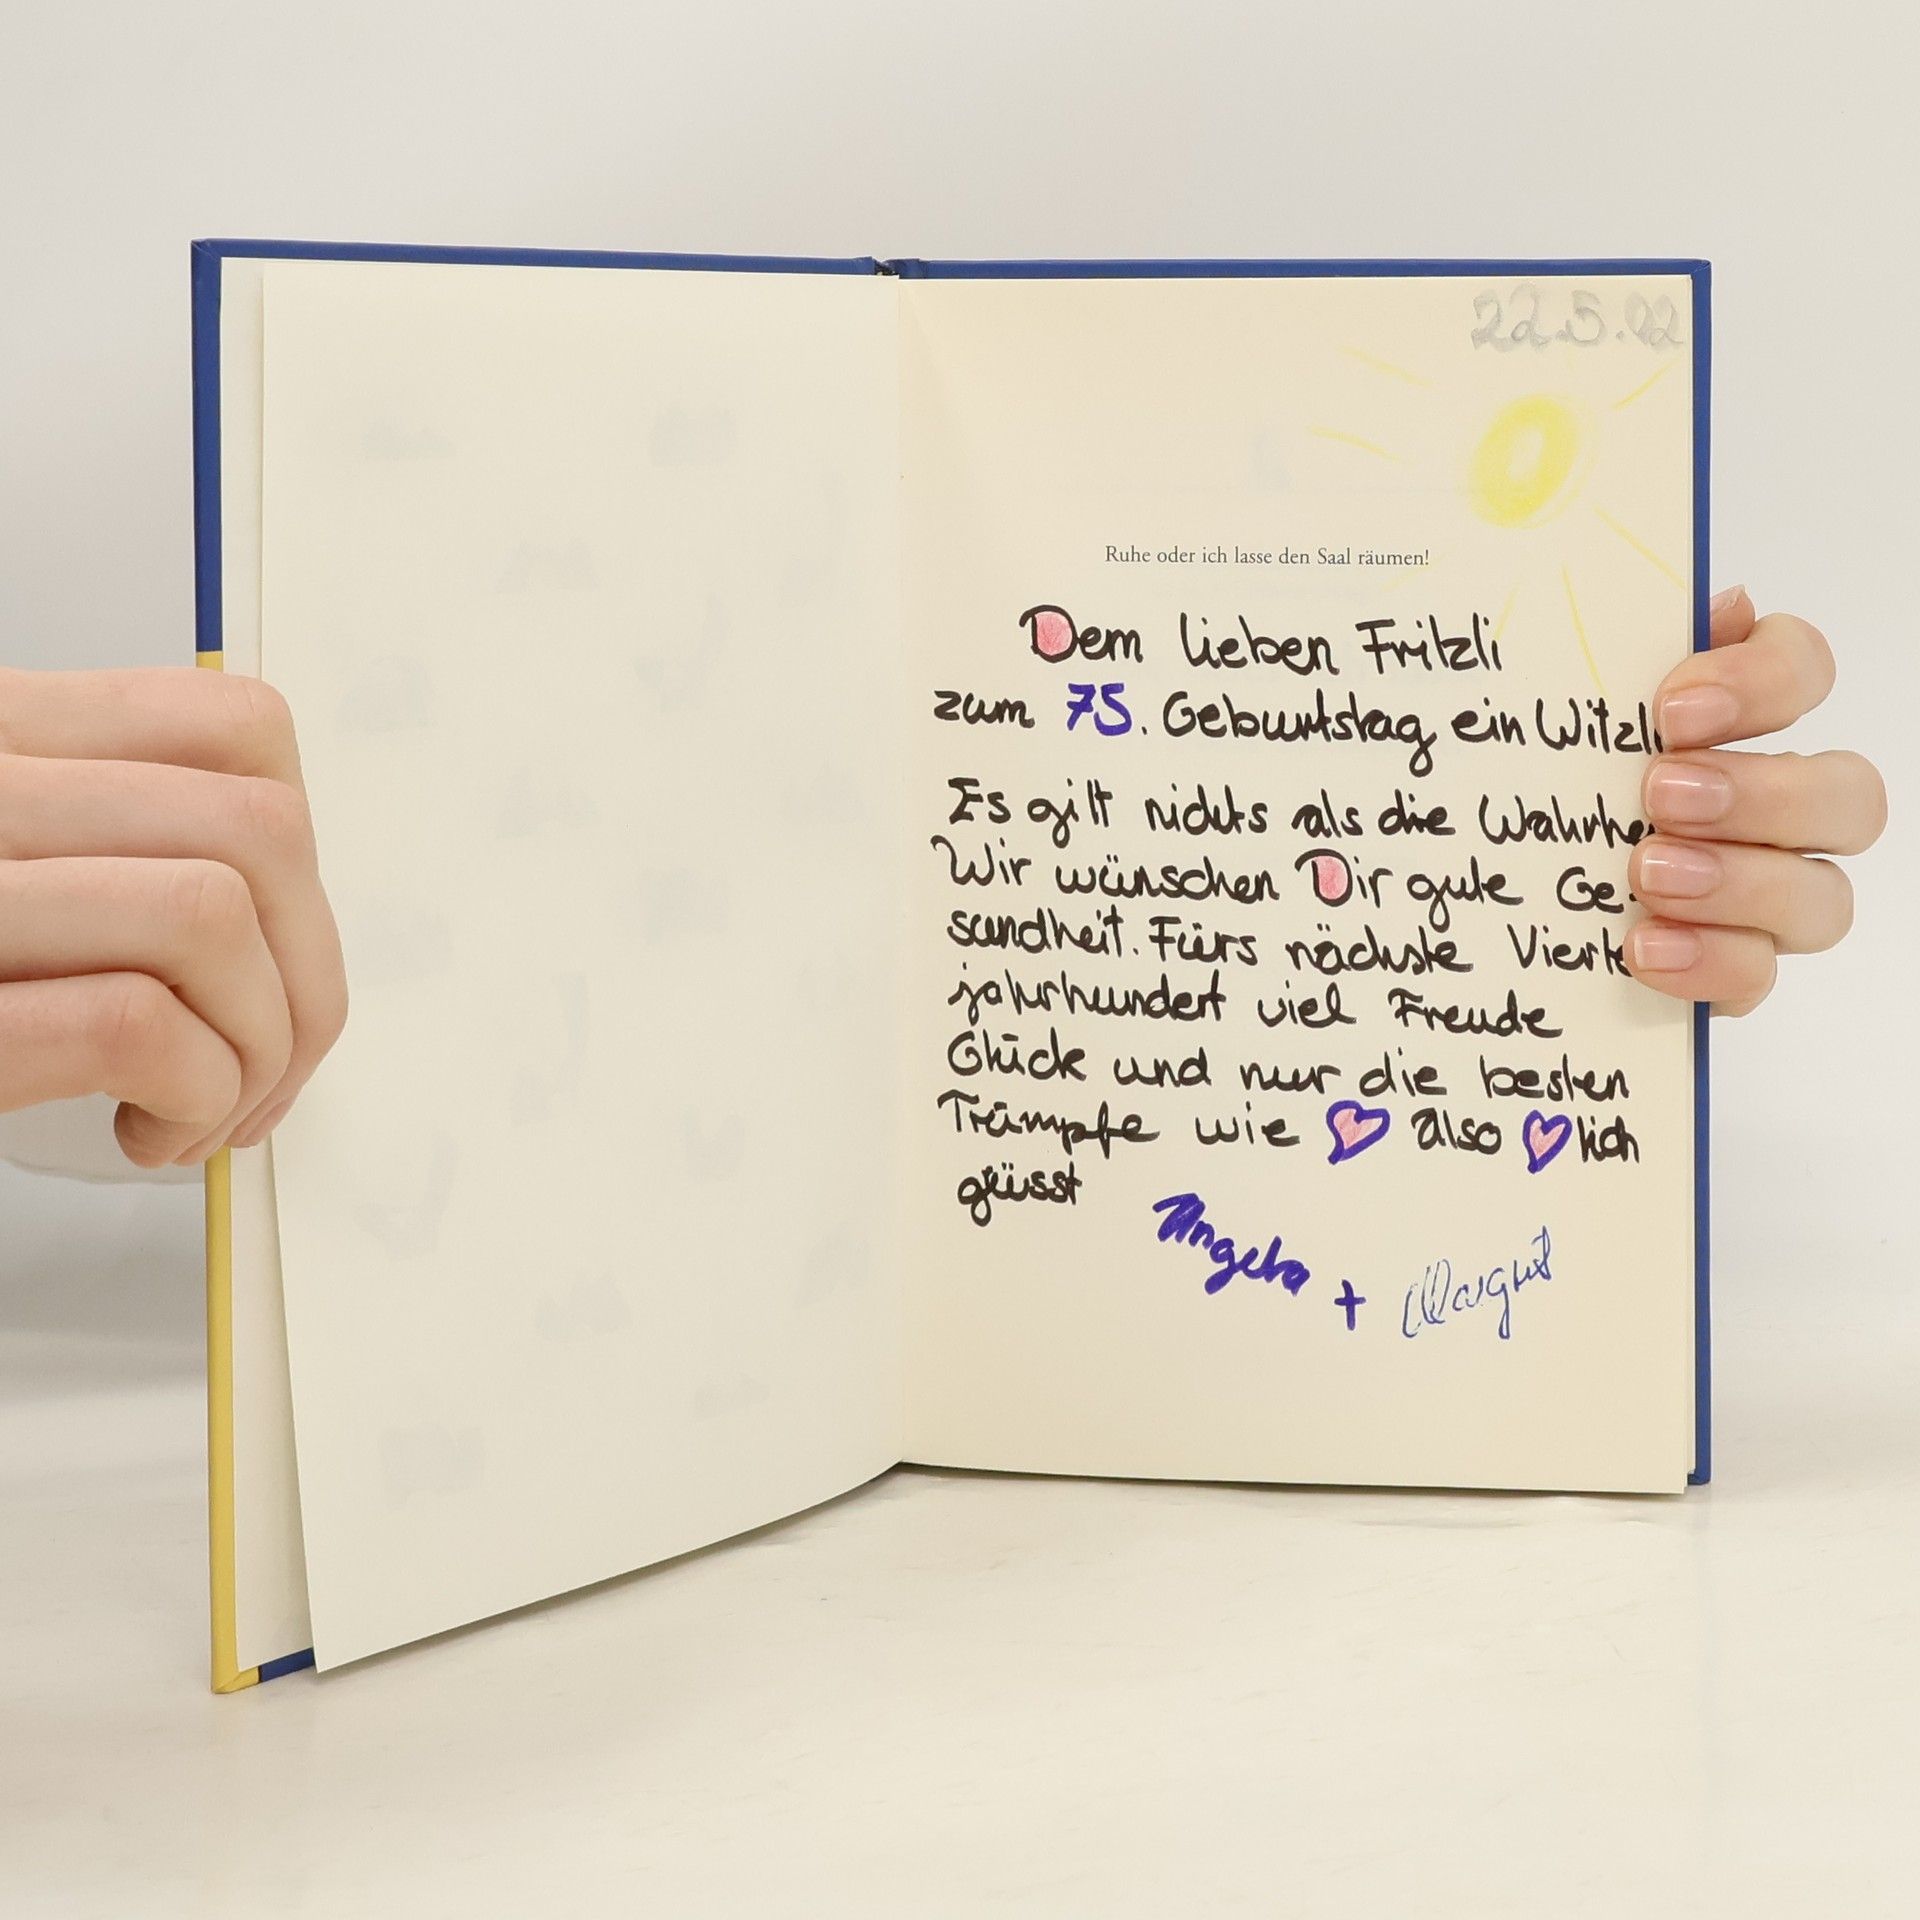 22.5.02
Ruhe oder ich lasse den Saal räumen!
Dem lieben Fritzli
zum 75. Geburtstag ein Witzli
Es gilt nichts als die Wahrhe
Wir wünschen Dir gute Ge-
sundheit. Fürs nächste Vierte
jahrhundert viel Freude
Glück und nur die besten
Trümpfe wie ♥ also ♥lich
grüsst
Angela + Margrit